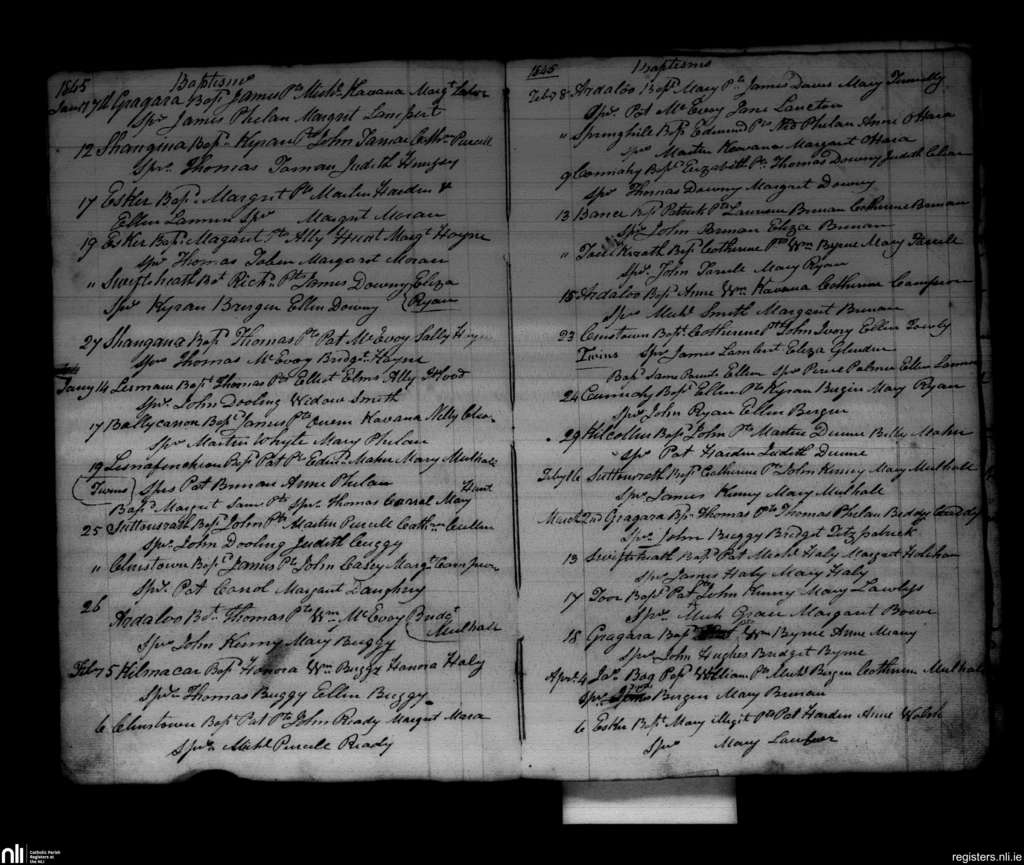 1845 Baptisms
Jany 7th Gragara Bapt James Pts Michl Kavana Margt
Spr James Phelan Margret Lampert
12 Shangina Bapt Kyran Pts John Tarman Cathn Purcell
Spr Thomas Tarman Judith
17 Esker Bapt Margrit Pts Martin Harden &
Ellen Lannin Spr Margrit Moran
19 Esker Bapt Margaret Pts Ally Hunt Margt Hayne
Spr Thomas Margaret Moran
" Swiftsheath Bt Richd Pts James Downy Eliza
Spr Kyran Brergen Ellen Downy (Ryan
27 Shangana Bapt Thomas Pts Pat McEvoy Sally
Spr Thomas McEvoy Bridgt Hayne
Jany 14 Bapt Thomas Pts Elliot Elms Ally Flood
Spr John Dooling Widow Smith
17 Ballycanon Bapt James Pts Owen Kavana Nelly
Spr Martin Whyte Mary Phelan
19 Bapt Pat Pts Edmd Maher Mary Mulhall
(Twins) Sprs Pat Brenan Anne Phelan
Bapt Margret Same Pts Spr Thomas Carral Mary Hunt
25 Suttonsrath Bapt John Pts Martin Purcell Cathn Cullen
Spr John Dooling Judith Cuggy
" Clinstown Bapt James Pts John Casey Margt
Spr Pat Carrol Margaret Daughny
26
Ardaloo Bt Thomas Pts Wm McEvoy (Bridgt
Spr John Kinny Mary Buggy (Mulhall
Feby 5 Kilmacar Bapt Honora Wm Buggy Honora Haly
Spr Thomas Buggy Ellen Buggy
6 Clinstown Bapt Pat Pts John Ready Margret Mara
Sprs Michl Purcell Ready
1845 Baptisms
Feby 8 Ardaloo Bapt Mary Pts James Davis Mary
Spr Pat McEvoy Jane
" Springhill Bapt Edmund Pts Phelan Anne OHara
Spr Martin Kavana Margaret OHara
9 Connahy Bapt Elizabeth Pts Thomas Downy Judith
Spr Thomas Downy Margret Downy
13 Banse Bapt Patrick Pts Laurence Brenan Catherine Brenan
Spr John Brenan Eliza Brenan
" Bapt Catherine Pts Wm Byrne Mary
Spr John Mary Ryan
15 Ardaloo Bapt Anne Wm Kavana Catherine
Spr Michl Smith Margaret Brenan
23 Clinstown Bapt Catherine Pts John Ivory Ellen
Twins Spr James Lambert Eliza
Bapt Same Parents Ellen Spr Peirce Palmer Ellen
24 Bapt Ellen Pts Kyran Bergin Mary Ryan
Spr John Ryan Ellen Bergin
29 Kilcollin Bapt John Pts Martin Dunne Biddy Maher
Spr Pat Harden Judith Dunne
Feby 16 Suttonsrath Bapt Catherine Pts John Kinny Mary Mulhall
Spr James Kinny Mary Mulhall
March 2nd Gragara Bapt Thomas Pts Thomas Phelan Biddy
Spr John Buggy Bridget Fitzpatrick
13 Swiftsheath Bapt Pat Michl Haly Margret Holohan
Spr James Haly Mary Haly
17 Toor Bapt Pat Pts John Kinny Mary Lawless
Spr Mich Grace Margaret Bowe
18 Gragara Bapt Wm Byrne Anne
Spr John Hughes Bridget Byrne
April 4 Bog Bapt William Pts Michl Bergin Catherine Mulhall
Spr Bergin Mary Brenan
6 Esker Bapt Mary illegit Pts Pat Harden Anne Walsh
Spr Mary
nli
Catholic Parish
Registers at
the NLI
registers.nli.ie